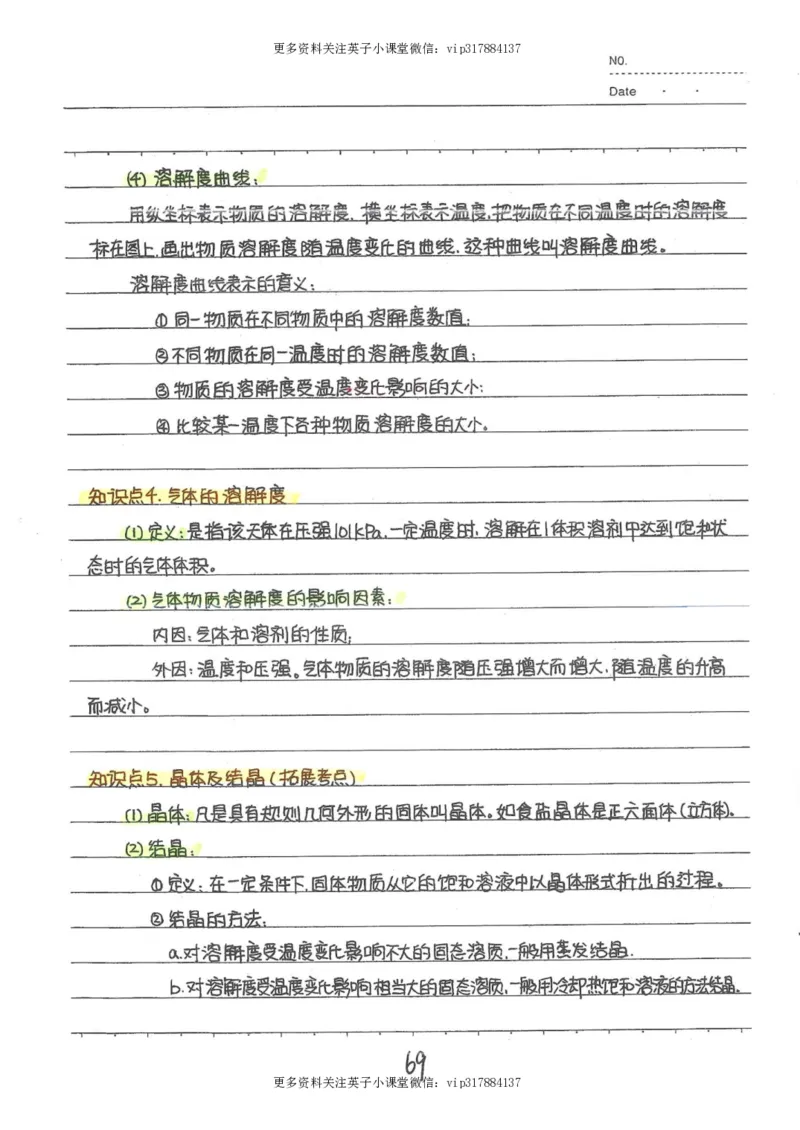 更多资料关注英子小课堂微信：vip317884137
NO.
Date
(4) 溶解度曲线：
用纵坐标表示物质的溶解度，横坐标表示温度，把物质在不同温度时的溶解度
标在图上，画出物质溶解度随温度变化的曲线，这种曲线叫溶解度曲线。
溶解度曲线表示的意义：
①同一物质在不同物质中的溶解度数值；
②不同物质在同一温度时的溶解度数值；
③物质的溶解度受温度变化影响的大小；
④比较某一温度下各种物质溶解度的大小。
知识点4.气体的溶解度
(1)定义：是指该天体在压强101kPa，一定温度时，溶解在1体积溶剂中达到饱和状
态时的气体体积。
(2)气体物质溶解度的影响因素：
内因：气体和溶剂的性质；
外因：温度和压强。气体物质的溶解度随压强增大而增大，随温度的升高
而减小。
知识点5.晶体及结晶（拓展考点）
(1)晶体：凡是具有规则几何外形的固体叫晶体。如食盐晶体是正六面体（立方体）.
(2)结晶：
①定义：在一定条件下，固体物质从它的饱和溶液中以晶体形式析出的过程。
②结晶的方法：
a.对溶解度受温度变化影响不大的固态溶质，一般用蒸发结晶.
b.对溶解度受温度变化影响相当大的固态溶质，一般用冷却热饱和溶液的方法结晶.
69
更多资料关注英子小课堂微信：vip317884137